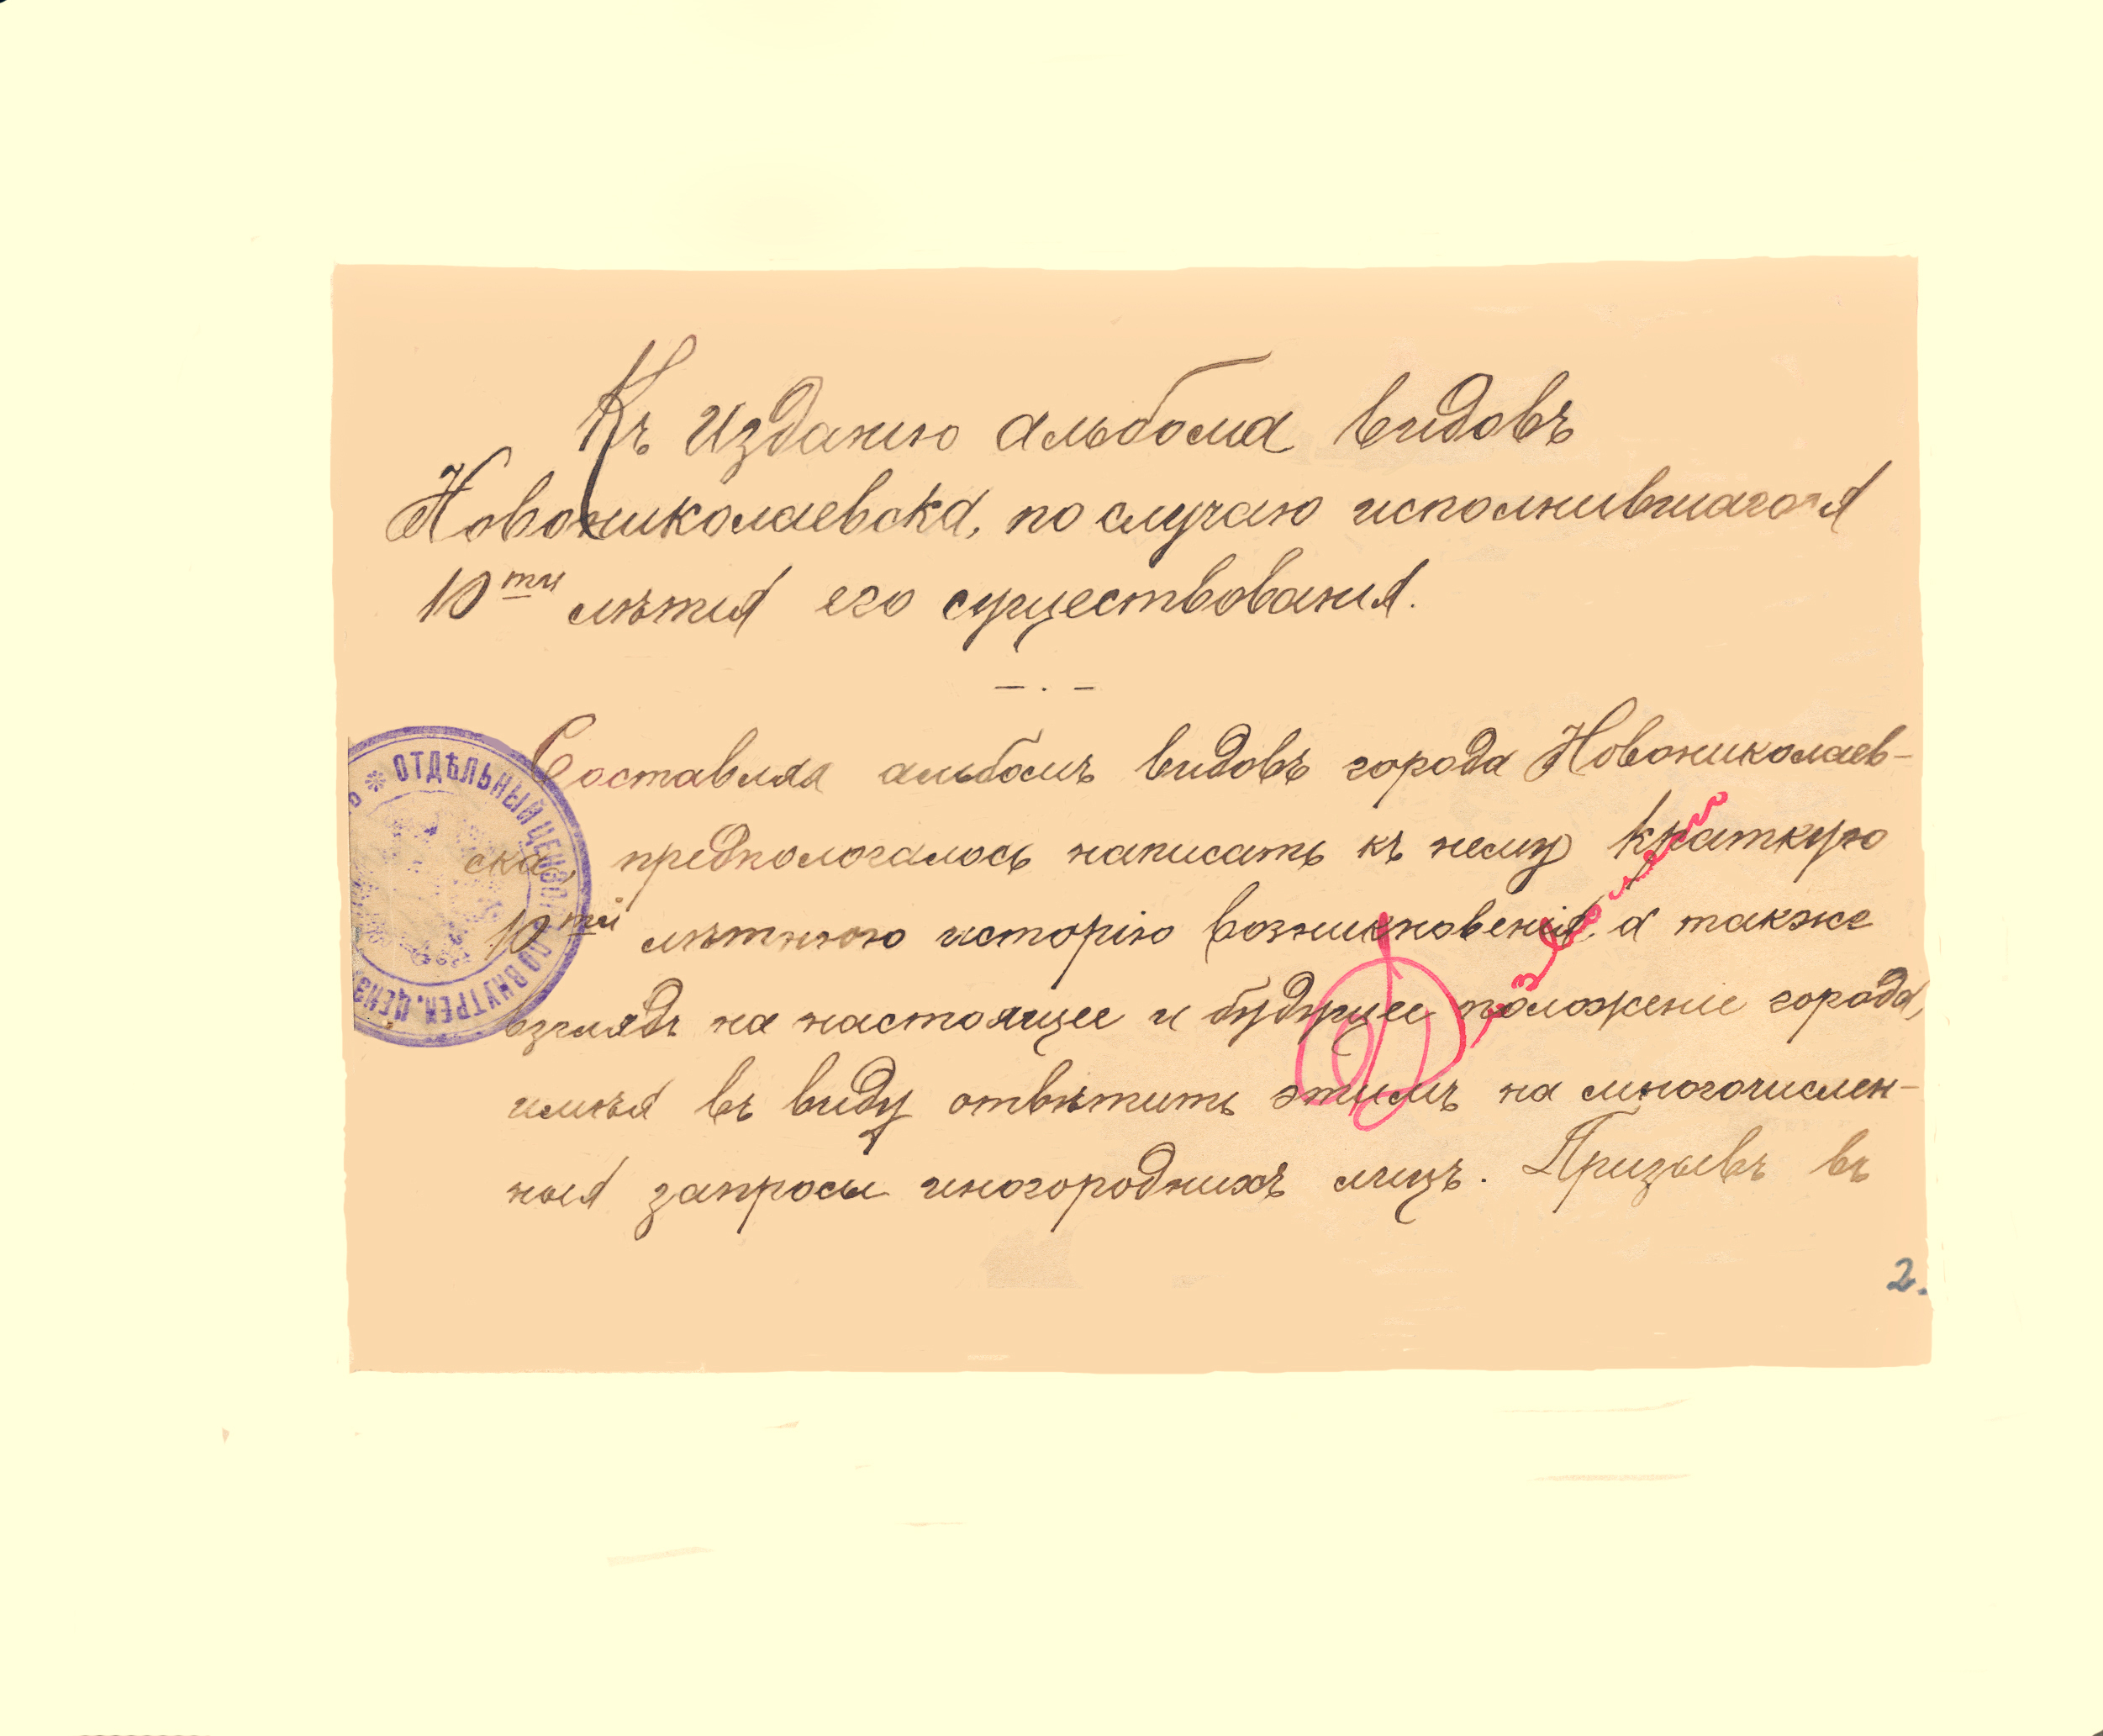 Къ изданию альбома видовъ
Новониколаевска, по случаю исполнившагося
10ти лѣтия его существования.
Составляя альбомъ видовъ города Новониколаев-
ска, предпологалось написать къ нему краткую
10ти лѣтнюю исторію возникновенія, а также
взглядъ на настоящее и будущее положеніе города,
имѣя въ виду отвѣтить этимъ на многочислен-
ныя запросы иногородныхъ лицъ. Призывъ въ
ОТДѢЛЬНЫЙ ЦЕНЗОРЪ ПО ВНУТРЕН. ЦЕНЗ
Дозволено
2.